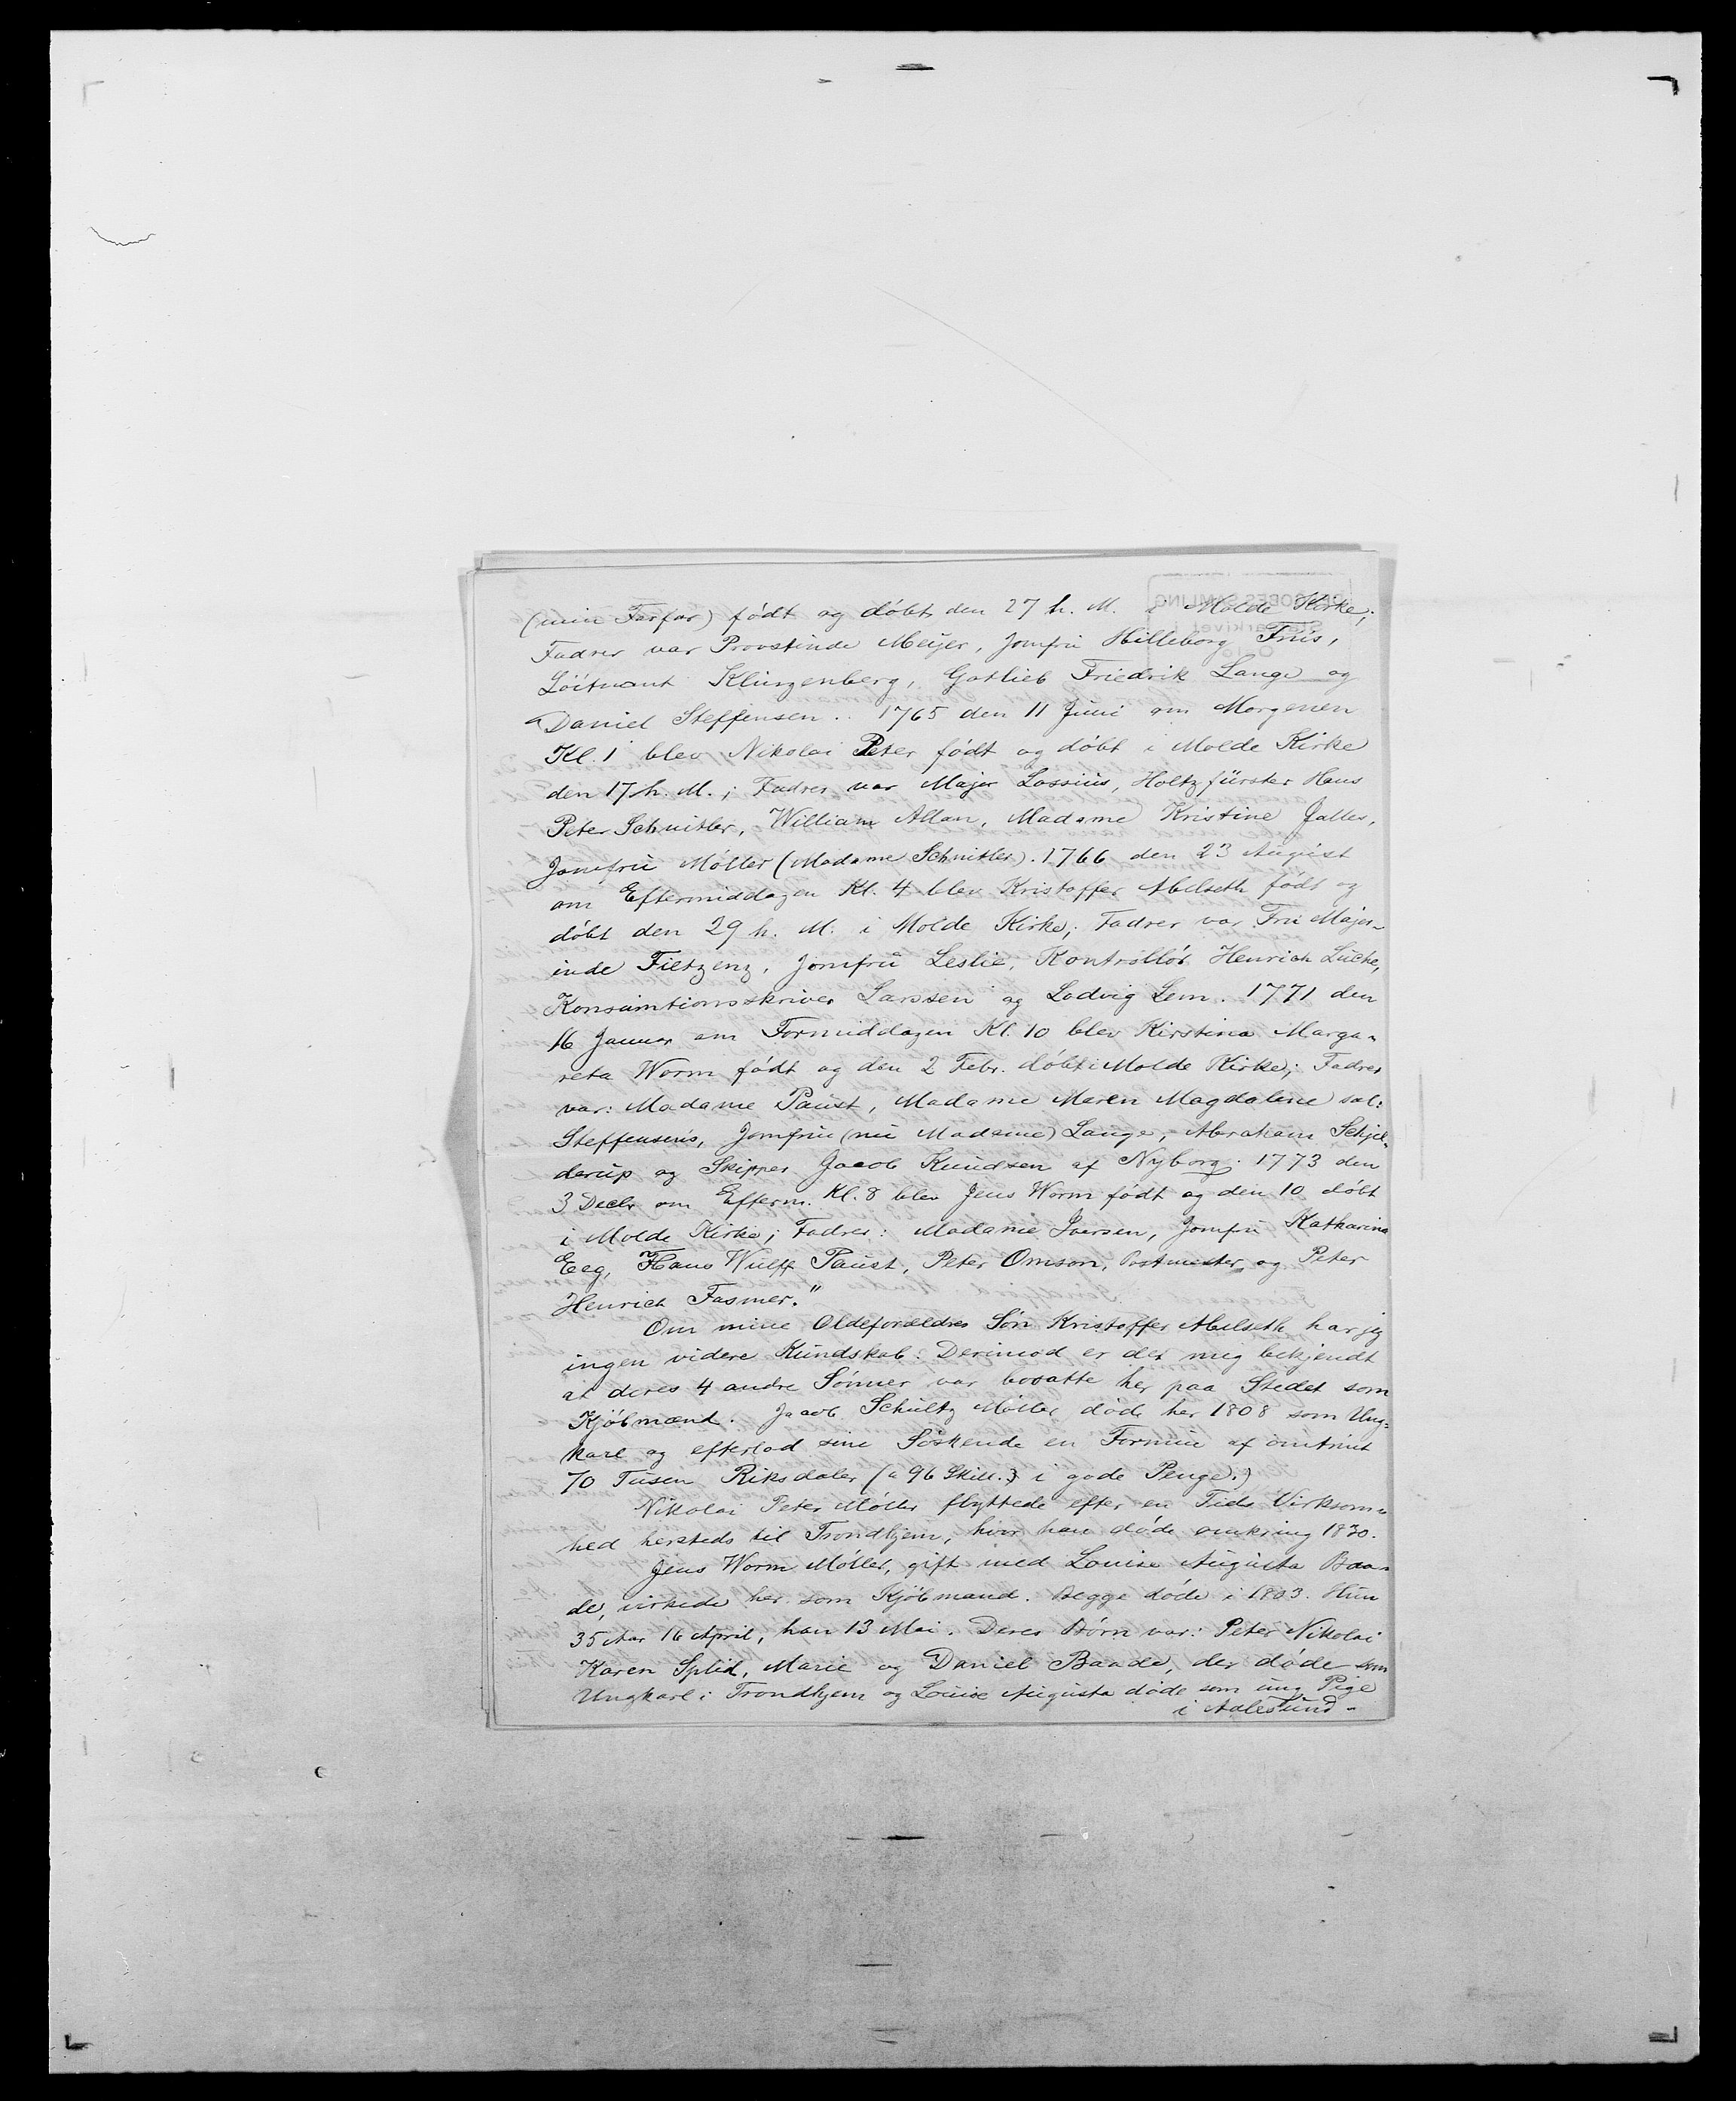 (min Farfar) født og døbt den 27 h. M. i Molde Kirke;
Fadrer var Provstinde Meyer, Jomfru Hilleborg Friis,
Löitnant Klingenberg, Gotlieb Friedrik Lange og
Daniel Steffensen. 1765 den 11 Juni om Morgenen
Kl. 1 blev Nikolai Peter født og døbt i Molde Kirke
den 17 h. M.; Fadrer var Major Lossius, Holtzfürster Hans
Peter Schnitler, William Allan, Madame Kristine
Jomfru Møller (Madame Schnitler). 1766 den 23 August
om Eftermiddagen Kl. 4 blev Kristoffer Abelseth født og
døbt den 29 h. M. i Molde Kirke; Fadrer var Fru Major-
inde Fietzenz, Jomfru Leslie, Kontrollör Henrich Lücke,
Konsumtionsskriver Larssen og Lodvig Lem. 1771 den
16 Januar om Formiddagen Kl. 10 blev Kirstina Marga-
reta Worm født og den 2 Febr. døbt i Molde Kirke; Fadrer
var: Madame Paust, Madame Maren Magdalene sal:
Steffensens, Jomfru (nu Madame) Lange, Abraham Schjel-
derup og Skipper Jacob Knudsen af Nyborg. 1773 den
3 Decbr om Efterm. Kl. 8 blev Jens Worm født og den 10 døbt
i Molde Kirke; Fadrer: Madame Iversen, Jomfru Katharina
Eeg, Hans Wulff Paust, Peter Omson, Postmester og Peter
Henrich Fasmer."
Om mine Oldeforældres Søn Kristoffer Abelseth har jeg
ingen videre Kundskab. Derimod er det mig bekjendt
at deres 4 andre Sønner var bosatte her paa Stedet som
Kjøbmænd. Jacob Schultz Møller døde her 1808 som Ung-
karl og efterlod sine Söskende en Formue af omtrent
70 Tusen Riksdaler (a 96 Skill.) i gode Penge.)
Nikolai Peter Møller flyttede efter en Tids Virksom-
hed hersteds til Trondhjem, hvor han døde omkring 1830.
Jens Worm Møller, gift med Louise Augusta Baa-
de, virkede her som Kjøbmand. Begge døde i 1803. Hun
35 Aar 16 April, han 13 Mai. Deres Børn var: Peter Nikolai
Karen Splid, Marie og Daniel Baade, der døde som
Ungkarl i Trondhjem og Louise Augusta døde som ung Pige
i Aalesund.